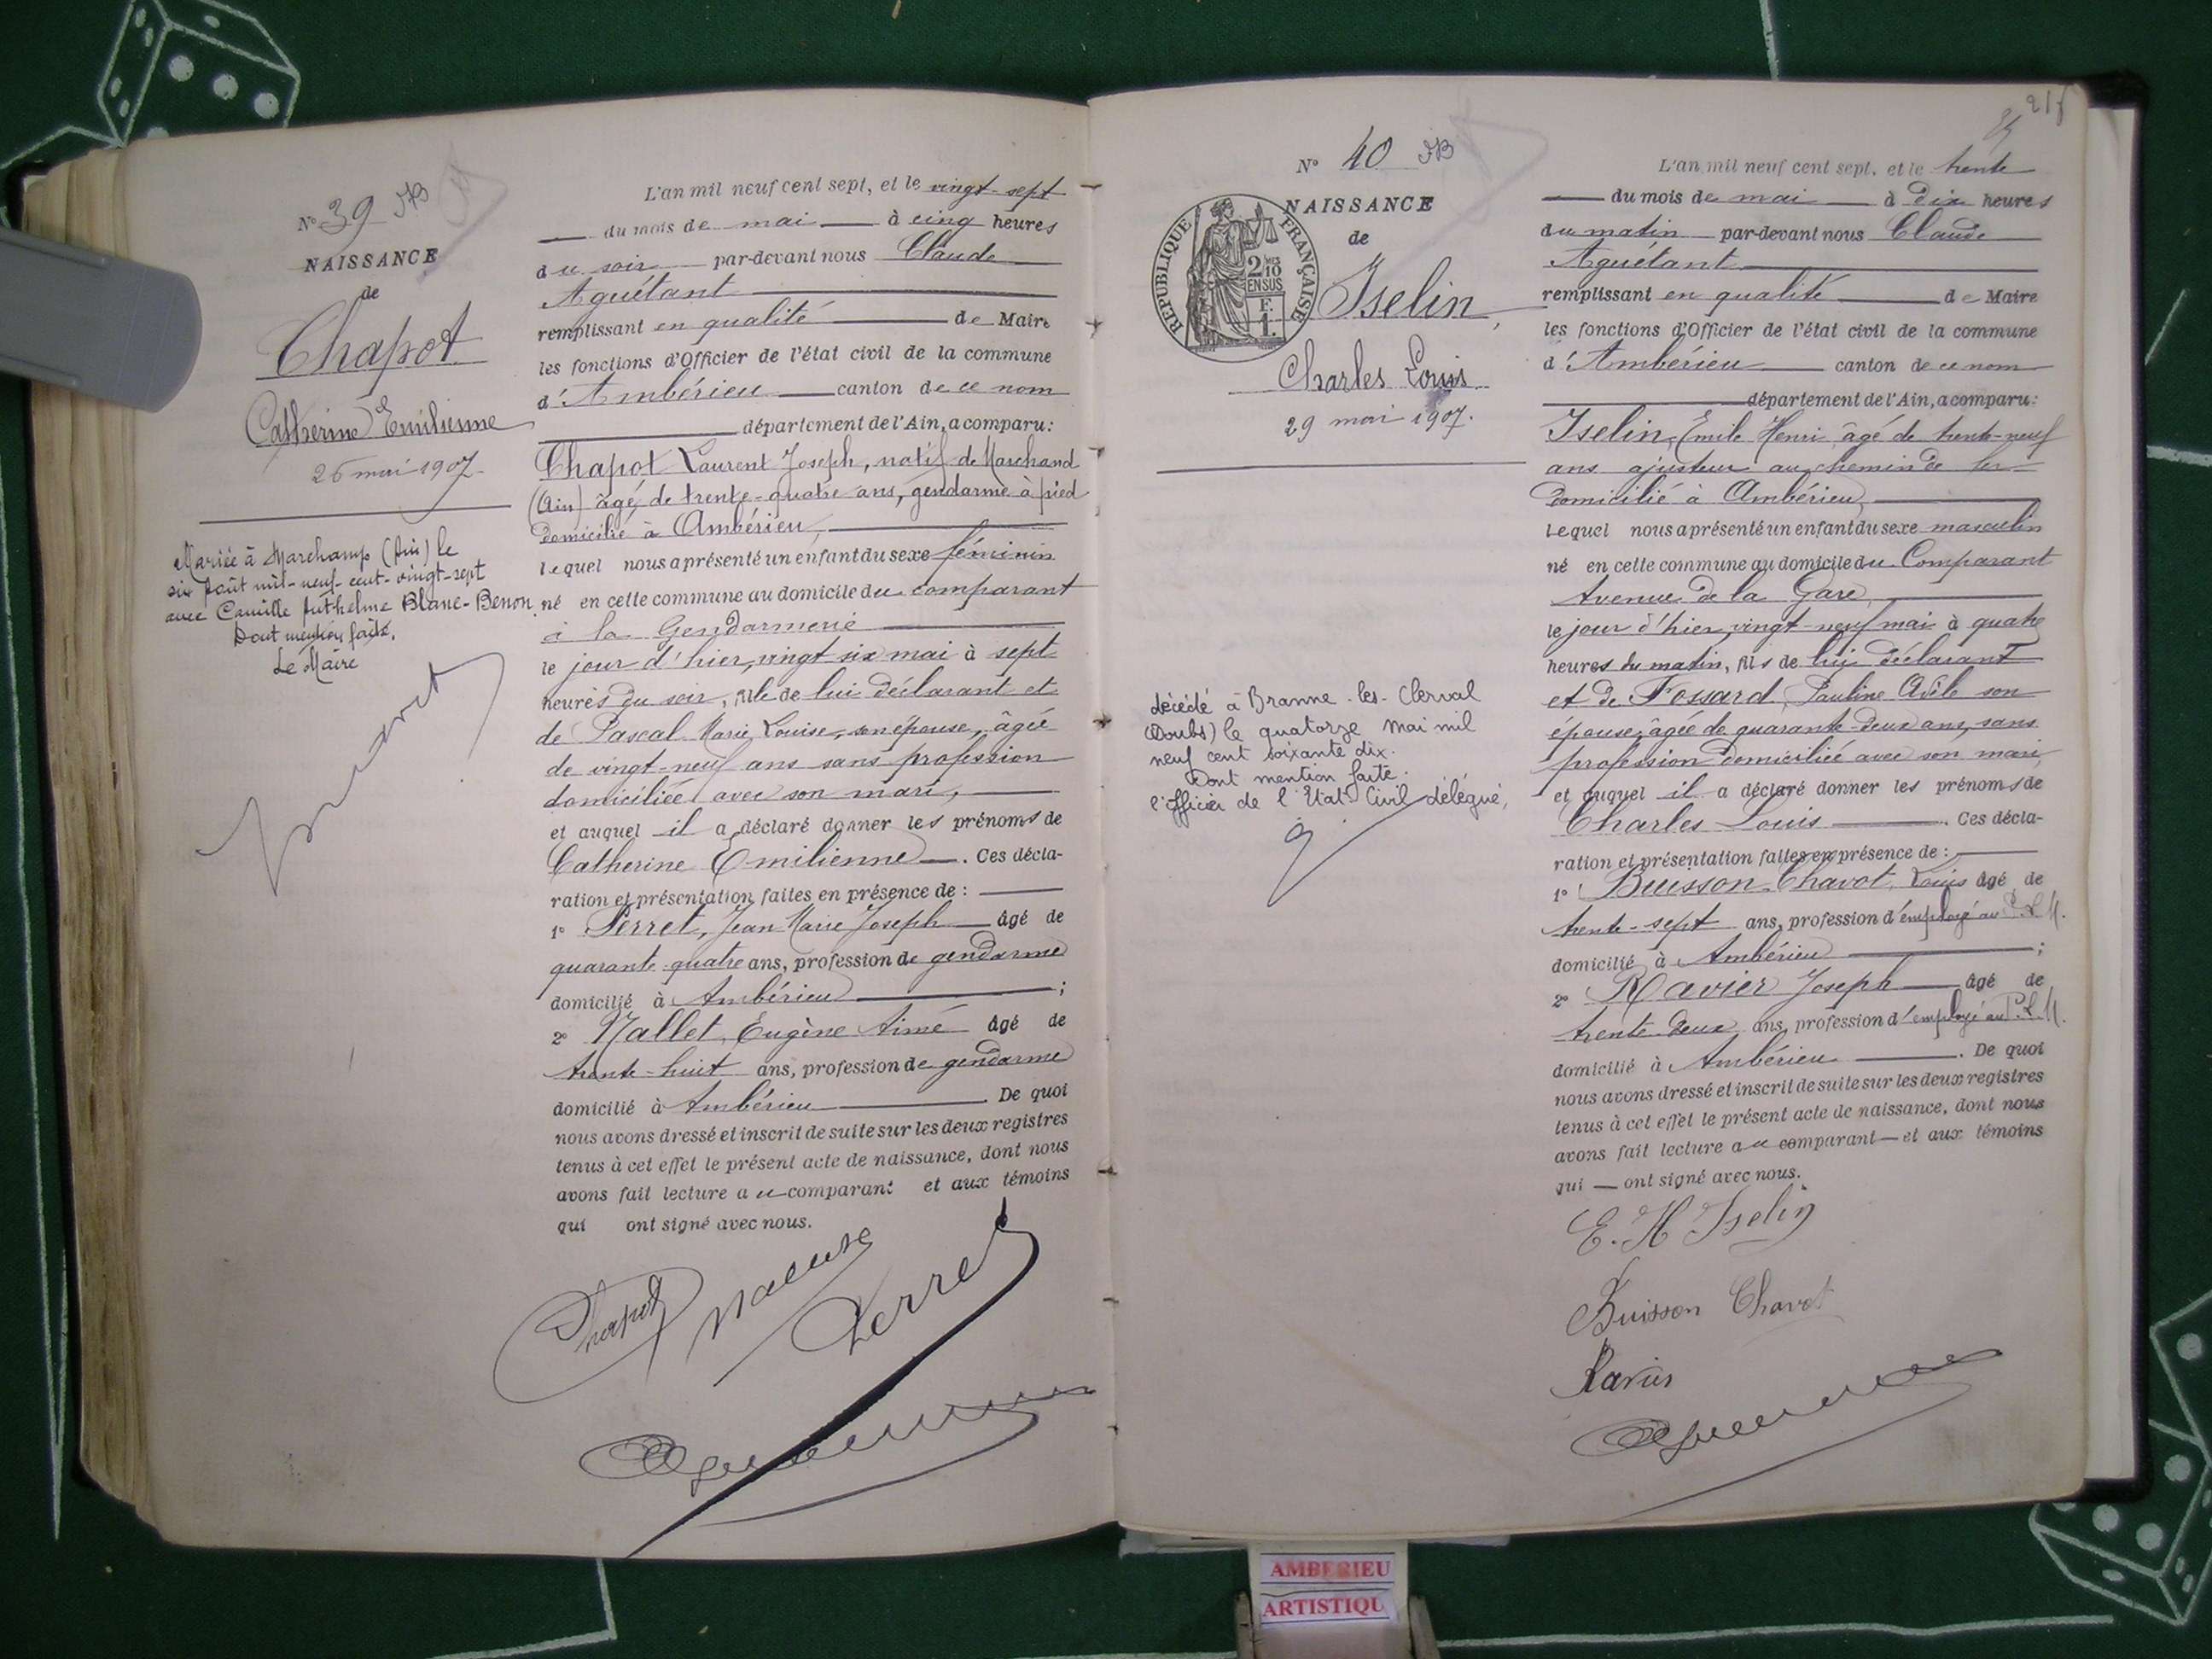 N° 39
NAISSANCE
de
Chapot
Catherine Emilienne
26 mai 1907
Mariée à Marchamp (Ain) le
six août mil-neuf-cent-vingt-sept
avec Camille Anthelme Blanc-Benon
Dont mention faite.
Le Maire
L'an mil neuf cent sept, et le vingt-sept
du mois de mai à cinq heures
du soir par-devant nous Claude
Aguétant
remplissant en qualité de Maire
les fonctions d'Officier de l'état civil de la commune
d'Ambérieu canton de ce nom
département de l'Ain, a comparu:
Chapot Laurent Joseph, natif de Marchand
(Ain) âgé de trente-quatre ans, gendarme à pied
domicilié à Ambérieu,
lequel nous a présenté un enfant du sexe féminin
né en cette commune au domicile du comparant
à la Gendarmerie
le jour d'hier, vingt six mai à sept
heures du soir, fille de lui déclarant et
de Pascal Marie Louise, son épouse, âgée
de vingt-neuf ans sans profession
domiciliée avec son mari,
et auquel il a déclaré donner les prénoms de
Catherine Emilienne. Ces décla-
ration et présentation faites en présence de :
1° Perret, Jean Marie Joseph âgé de
quarante quatre ans, profession de gendarme
domicilié à Ambérieu ;
2° Mallet, Eugène Aimé âgé de
trente-huit ans, profession de gendarme
domicilié à Ambérieu De quoi
nous avons dressé et inscrit de suite sur les deux registres
tenus à cet effet le présent acte de naissance, dont nous
avons fait lecture au comparant et aux témoins
qui ont signé avec nous.
Chapot
Perret
N° 40
NAISSANCE
de
RÉPUBLIQUE FRANÇAISE
2/10 MES
EN SUS
F.
1.
Iselin,
Charles Louis
29 mai 1907.
décédé à Branne-les-Clerval
(Doubs) le quatorze mai mil
neuf cent soixante dix.
Dont mention faite.
l'officier de l'Etat Civil délégué,
L'an mil neuf cent sept, et le trente
du mois de mai à dix heures
du matin par-devant nous Claude
Aguétant
remplissant en qualité de Maire
les fonctions d'Officier de l'état civil de la commune
d'Ambérieu canton de ce nom
département de l'Ain, a comparu:
Iselin, Emile Henri, âgé de trente-neuf
ans ajusteur au chemin de fer
domicilié à Ambérieu,
Lequel nous a présenté un enfant du sexe masculin
né en cette commune au domicile du Comparant
Avenue de la Gare,
le jour d'hier, vingt-neuf mai à quatre
heures du matin, fils de lui déclarant
et de Fossard, Pauline Adèle son
épouse, âgée de quarante-deux ans, sans
profession domiciliée avec son mari,
et auquel il a déclaré donner les prénoms de
Charles Louis. Ces décla-
ration et présentation faites en présence de :
1° Buisson Chavot, Louis âgé de
trente-sept ans, profession d'employé au P.L.M.
domicilié à Ambérieu ;
2° Ravier Joseph âgé de
trente deux ans, profession d'employé au P.L.M.
domicilié à Ambérieu. De quoi
nous avons dressé et inscrit de suite sur les deux registres
tenus à cet effet le présent acte de naissance, dont nous
avons fait lecture au comparant et aux témoins
qui ont signé avec nous.
E. H Iselin
Buisson Chavot
Ravier
AMBERIEU
ARTISTIQU